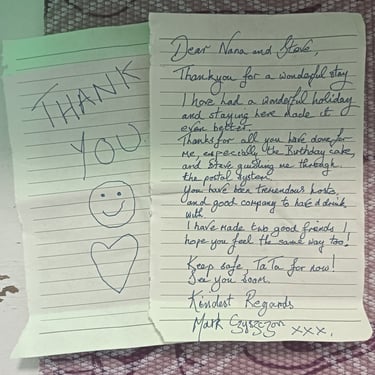 THANK
YOU
Dear Nana and Steve,
Thankyou for a wonderful stay
I have had a wonderful holiday
and staying here made it
even better.
Thanks for all you have done for
me, especially the Birthday cake,
and Steve guiding me through
the postal system.
You have been tremendous hosts,
and good company to have a drink
with.
I have made two good friends I
hope you feel the same way too!
Keep safe, TaTa for now!
See you soon.
Kindest Regards
Mark Czyszczon xxx.